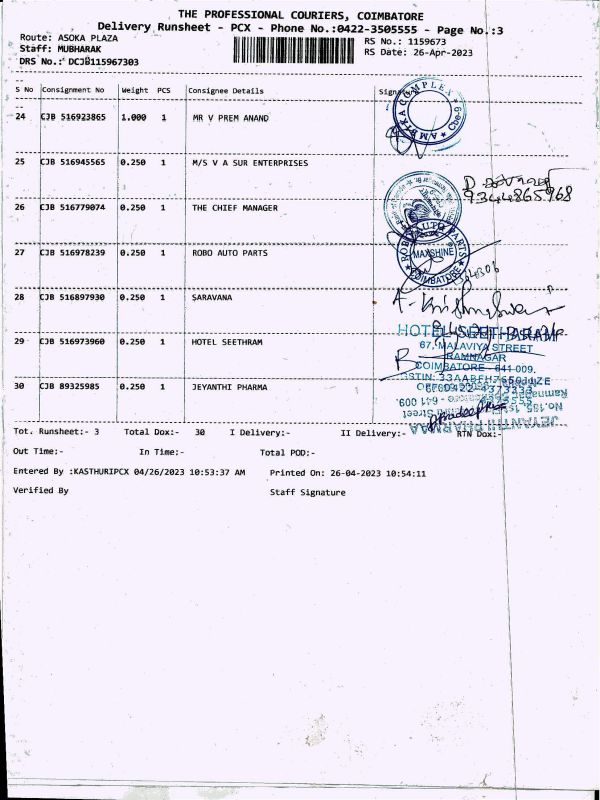 THE PROFESSIONAL COURIERS, COIMBATORE
Delivery Runsheet - PCX - Phone No.:0422-3505555 - Page No.:3
Route: ASOKA PLAZA
RS No.: 1159673
Staff: MUBHARAK
RS Date: 26-Apr-2023
DRS No.: DCJB115967303
S No Consignment No Weight PCS Consignee Details
24 CJB 516923865 1.000 1 MR V PREM ANAND
AMBIKA COMPLEX Cbe-9
25 CJB 516945565 0.250 1 M/S V A SUR ENTERPRISES
9344865968
26 CJB 516779074 0.250 1 THE CHIEF MANAGER
27 CJB 516978239 0.250 1 ROBO AUTO PARTS
ROBO AUTO PARTS MAXSHINE COIMBATORE
28 CJB 516897930 0.250 1 SARAVANA
29 CJB 516973960 0.250 1 HOTEL SEETHRAM
HOTEL SEETHARAM
67, MALAVIYA STREET
RAMNAGAR
COIMBATORE - 641 009.
30 CJB 89325985 0.250 1 JEYANTHI PHARMA
JEYANTHI PHARMAA
Tot. Runsheet:- 3 Total Dox:- 30 I Delivery:- II Delivery:- RTN Dox:-
Out Time:- In Time:- Total POD:-
Entered By :KASTHURIPCX 04/26/2023 10:53:37 AM Printed On: 26-04-2023 10:54:11
Verified By Staff Signature